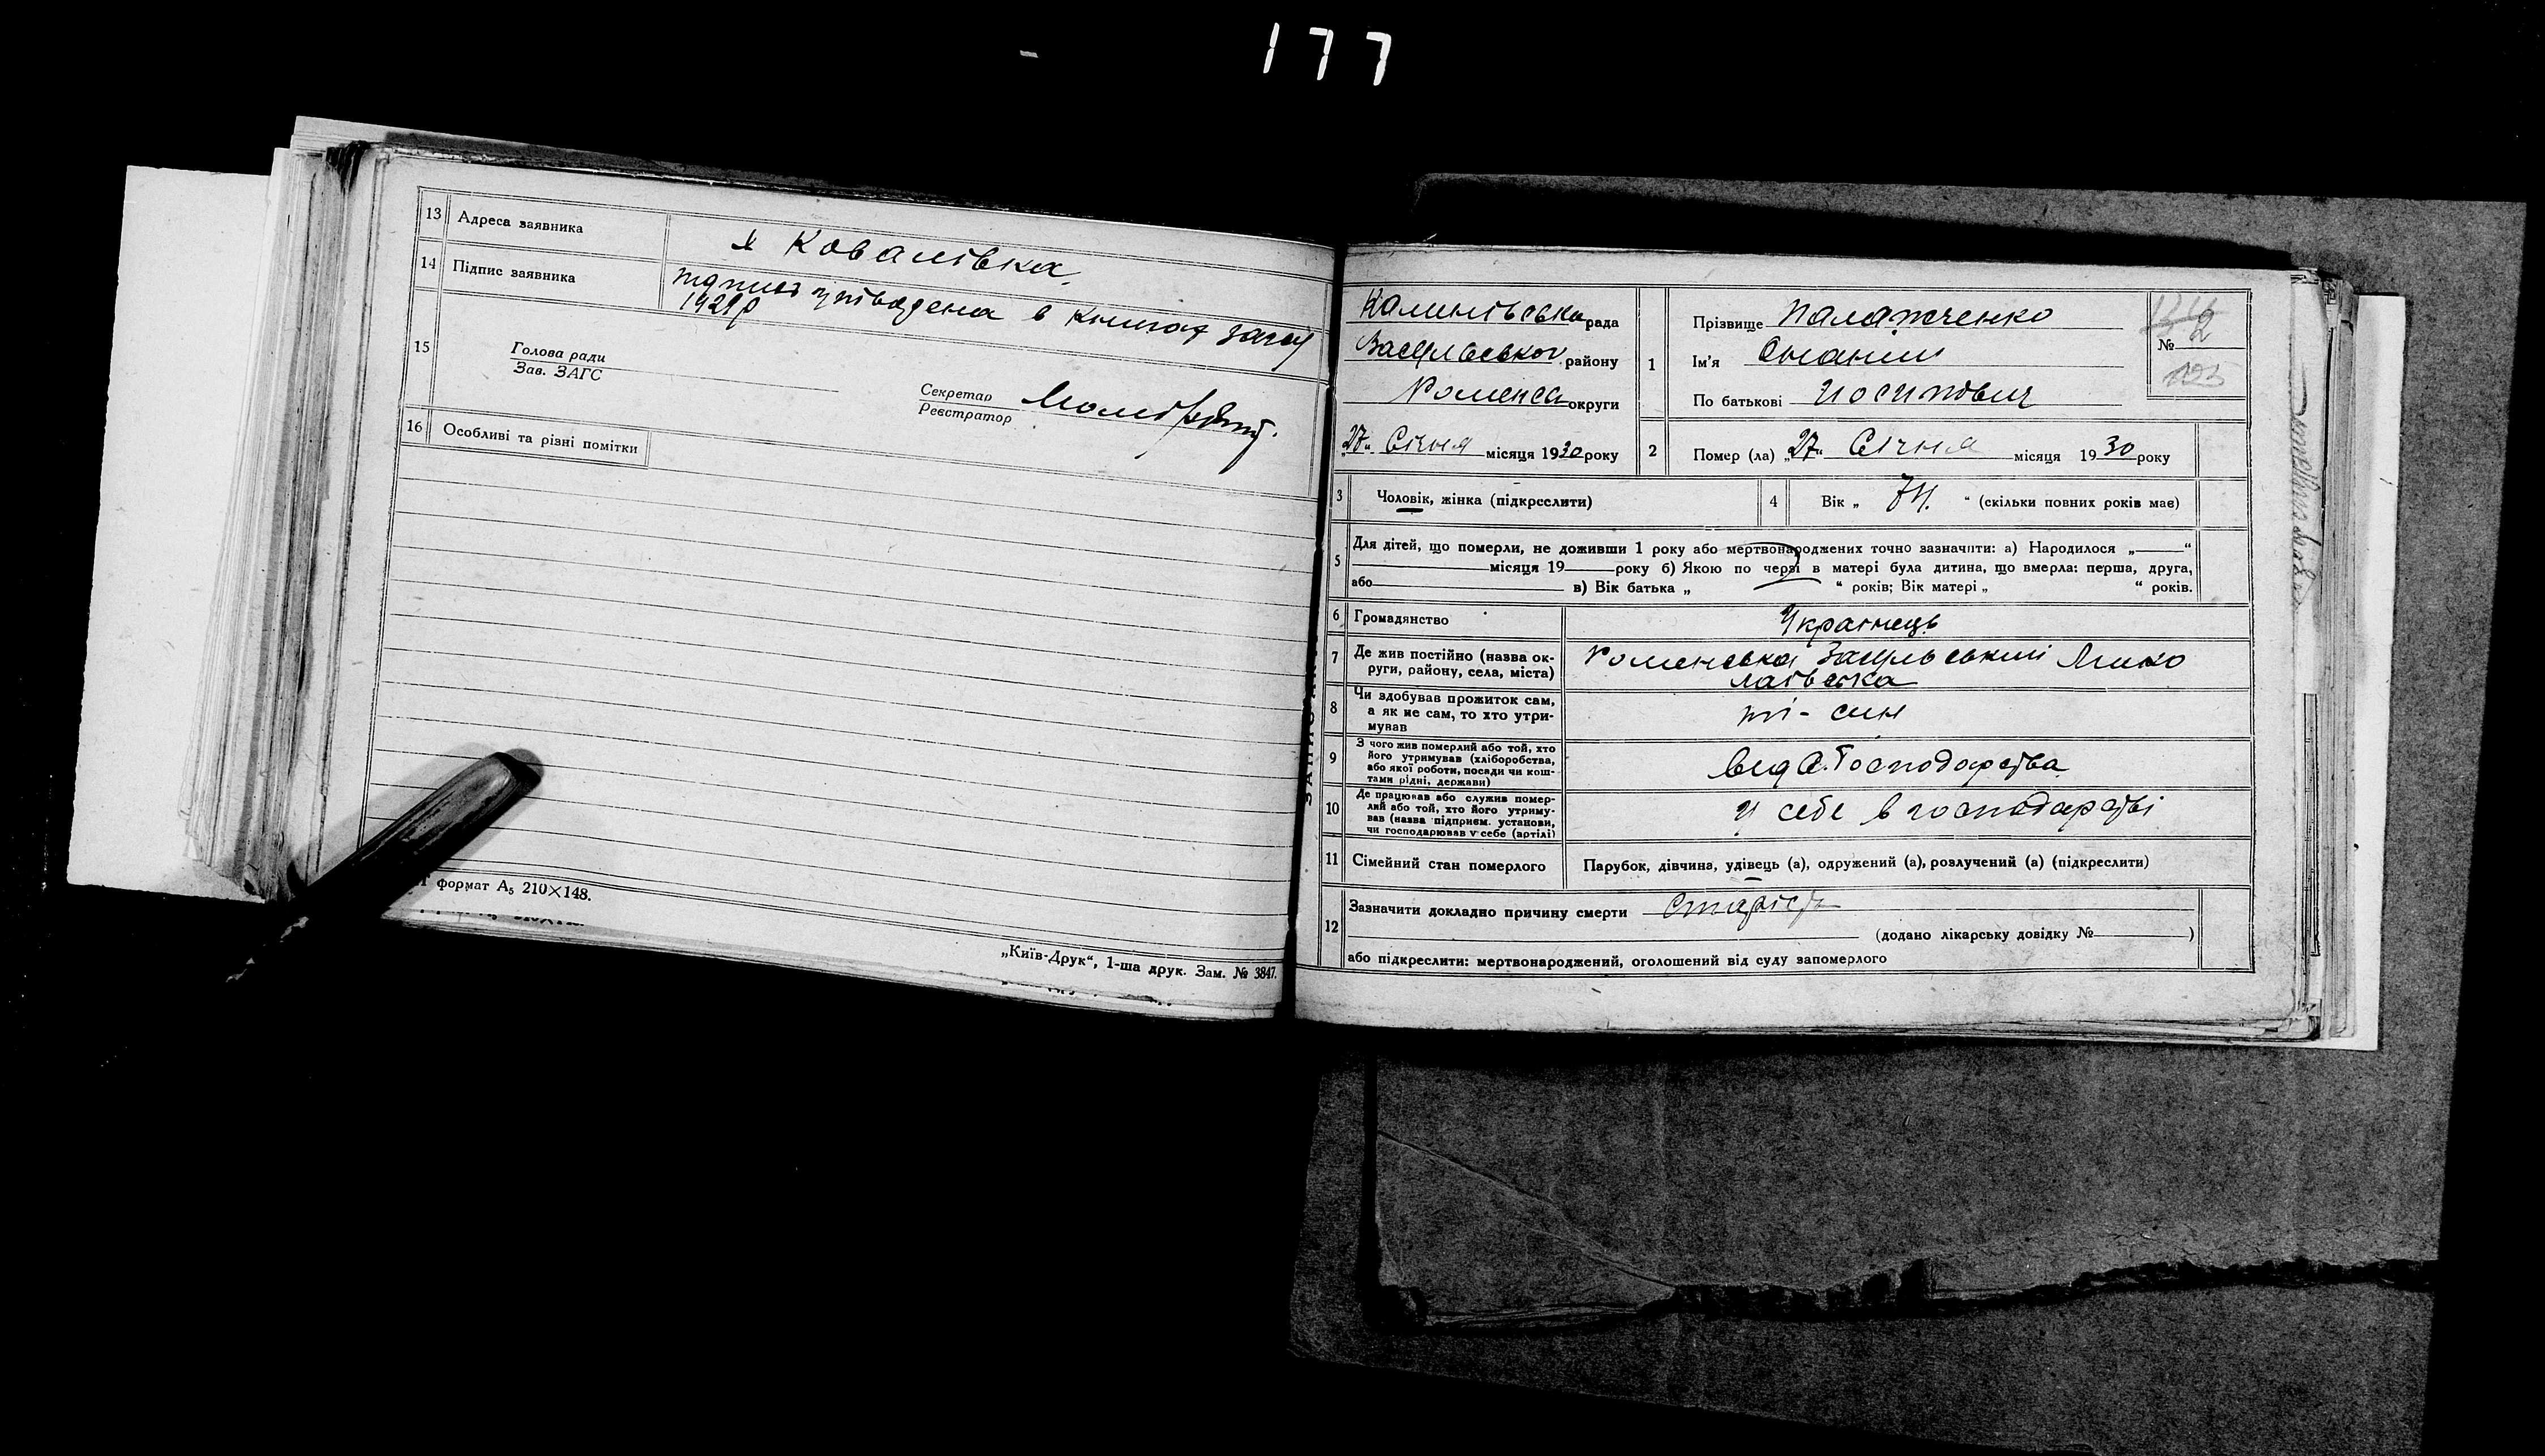 177
13 Адреса заявника х Ковалівка.
14 Підпис заявника підпис упівадена в книгах загсу
1929р
15 Голова ради
Зав. ЗАГС
Секретар
Реєстратор
16 Особливі та різні помітки
формат А₅ 210×148.
„Київ-Друк“, 1-ша друк. Зам. № 3847.
рада
Засульського району
Роменсь округи
„27“ Січня місяця 1930 року
1 Прізвище Палажченко
Ім'я Онаній
По батькові Иосипович
№ 2
105
2 Помер (ла) „27“ Січня місяця 1930 року
3 Чоловік, жінка (підкреслити)
4 Вік „ 74. “ (скільки повних років має)
5 Для дітей, що померли, не доживши 1 року або мертвонароджених точно зазначити: а) Народилося „ “
місяця 19 року б) Якою по черзі в матері була дитина, що вмерла: перша, друга,
або в) Вік батька „ “ років; Вік матері „ “ років.
6 Громадянство Українець
7 Де жив постійно (назва ок-
руги, район, села, міста) Роменська Засульський Мико
лаївська
8 Чи здобував прожиток сам,
а як не сам, то хто утри-
мував ні - син
9 З чого жив померлий або той, хто
його утримував (хліборобства,
або якої роботи, посади чи кош-
тами рідні, держави) від С. Господарства
10 Де працював або служив помер-
лий або той, хто його утриму-
вав (назва підприєм. установи,
чи господарював у себе (артілі) у себе в господарстві
11 Сімейний стан померлого Парубок, дівчина, удівець (а), одружений (а), розлучений (а) (підкреслити)
12 Зазначити докладно причину смерти Старість
(додано лікарську довідку № )
або підкреслити: мертвонароджений, оголошений від суду запомерлого